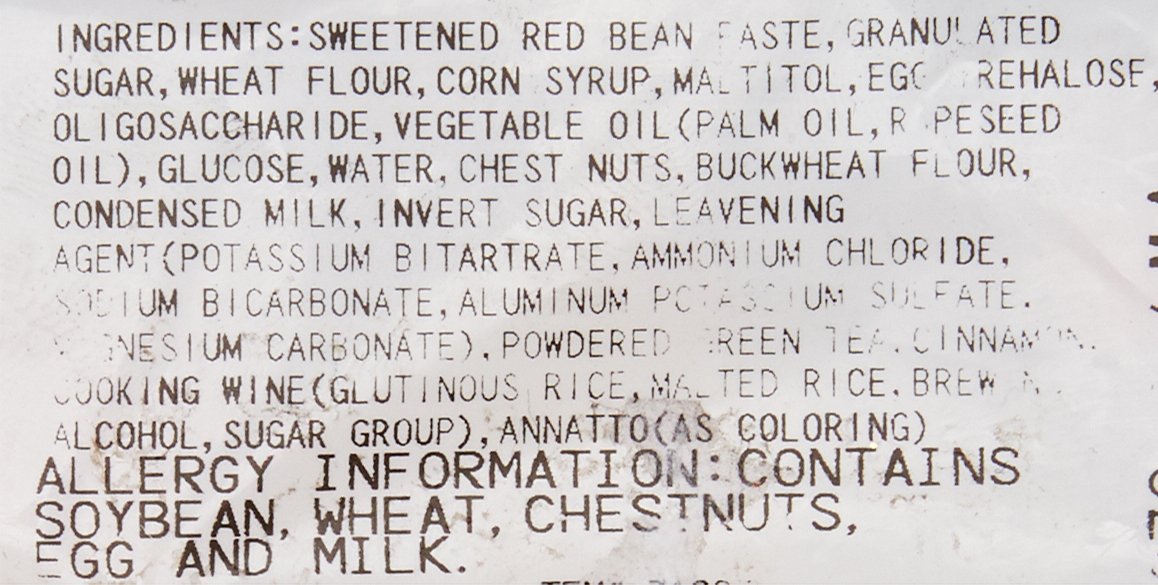 INGREDIENTS:SWEETENED RED BEAN PASTE,GRANULATED
SUGAR,WHEAT FLOUR,CORN SYRUP,MALTITOL,EGG TREHALOSE,
OLIGOSACCHARIDE,VEGETABLE OIL(PALM OIL,RAPESEED
OIL),GLUCOSE,WATER,CHEST NUTS,BUCKWHEAT FLOUR,
CONDENSED MILK,INVERT SUGAR,LEAVENING
AGENT(POTASSIUM BITARTRATE,AMMONIUM CHLORIDE,
SODIUM BICARBONATE,ALUMINUM POTASSIUM SULFATE.
MAGNESIUM CARBONATE),POWDERED GREEN TEA,CINNAMON.
COOKING WINE(GLUTINOUS RICE,MALTED RICE,BREWING
ALCOHOL,SUGAR GROUP),ANNATTO(AS COLORING)
ALLERGY INFORMATION:CONTAINS
SOYBEAN, WHEAT, CHESTNUTS,
EGG AND MILK.